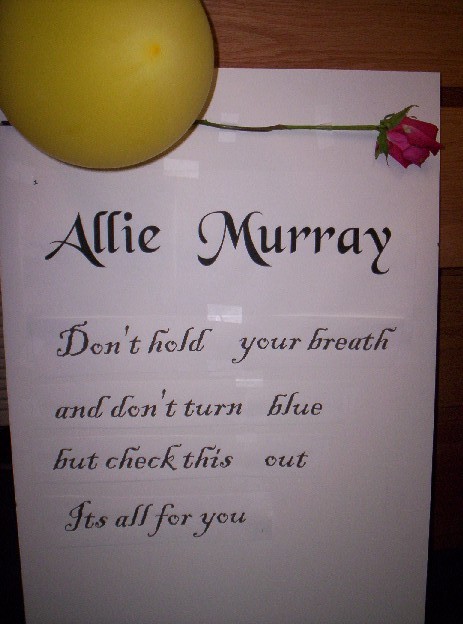 Allie Murray
Don't hold your breath
and don't turn blue
but check this out
Its all for you